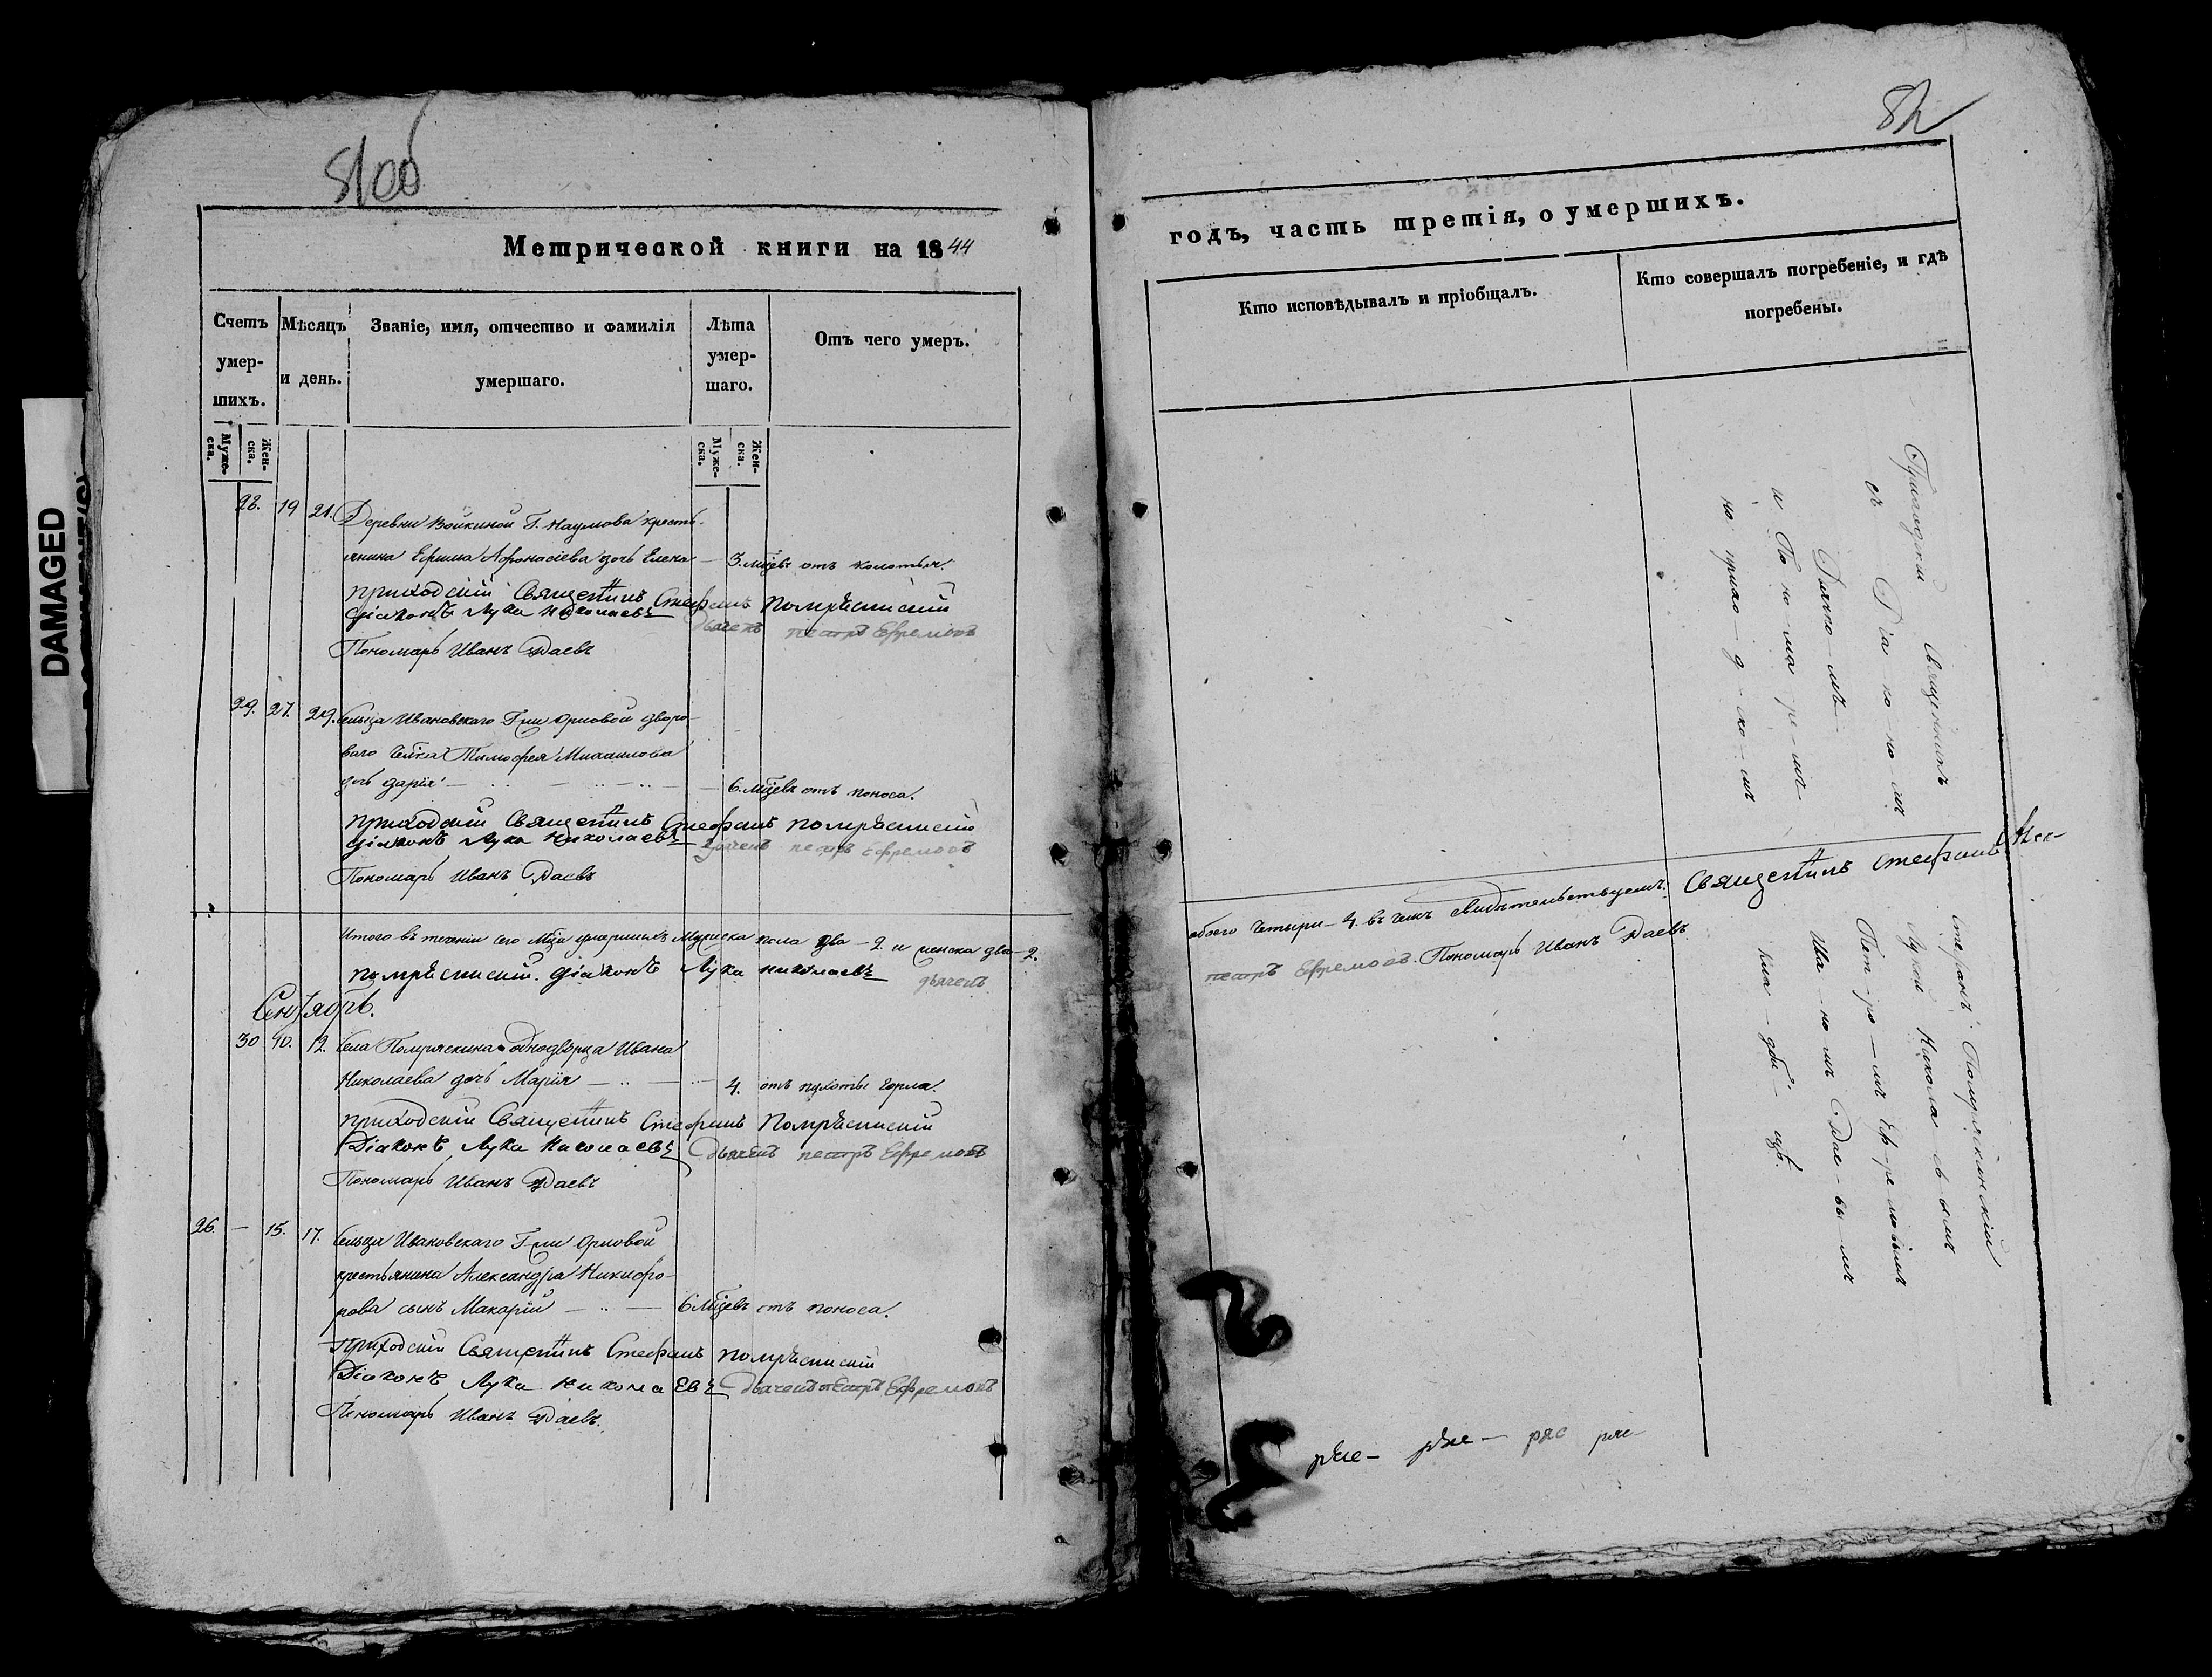 81об
Метрической книги на 1844
Счетъ умершихъ.
Мѣсяцъ и день.
Званіе, имя, отчество и фамилія умершаго.
Лѣта умершаго.
Отъ чего умеръ.
Мужеска.
Женска.
Мужеска.
Женска.
28. 19 21. Деревни Войкиной Г. Наумова кресть-
янина Ефима Афонасіева дочь Елена — 3. мцевъ отъ колотья.
приходскій Священникъ Стефанъ Помряскинскій
Діаконъ Лука Николаевъ Дьячекъ петръ Ефремовъ
Пономарь Иванъ Даевъ
29. 27. 29. Сельца Ивановскаго Г-жи Орловой дворо-
ваго челка Тимофея Михаилова
дочь Дарія — 6. мцевъ отъ поноса.
приходскій Священникъ Стефанъ помряскинскій
Діаконъ Лука Николаевъ Дьячекъ петръ Ефремовъ
Пономарь Иванъ Даевъ
Итого въ теченіи сего мца умершихъ Мужеска пола два - 2. и женска два - 2.
помряскинскій. Діаконъ Лука николаевъ дьячекъ
Сентябрь.
30 10. 12. Села Помряскина однодворца Ивана
Николаева дочь Марія — 4. отъ пухоты горла.
приходскій Священникъ Стефанъ Помряскинскій
Діаконъ Лука Николаевъ Дьячекъ петръ Ефремовъ
Пономарь Иванъ Даевъ
26. — 15. 17. Сельца Ивановскаго Г-жи Орловой
крестьянина Александра Никифо-
рова сынъ Макарій — 6 мцевъ отъ поноса.
Приходскій Священникъ Стефанъ помряскинскій
Діаконъ Лука Николаевъ Дьячекъ петръ Ефремовъ
Пономарь Иванъ Даевъ.
82
годъ, часть третія, о умершихъ.
Кто исповѣдывалъ и пріобщалъ.
Кто совершалъ погребеніе, и гдѣ погребены.
Приходскій Священникъ Стефанъ Помряскинскій
съ Діа ко но мъ Лукой Николаевымъ
Дьячко-мъ Пет-ро-мъ Ефремовымъ
и По но ма ре мъ Ива-но-мъ Дае-вы-мъ
на приход-ско-мъ клад-би-щѣ.
обоего Четыри - 4. въ чемъ свидѣтельствуемъ. Священникъ стефанъ
петръ Ефремовъ. Пономарь Иванъ Даевъ.
DAMAGED